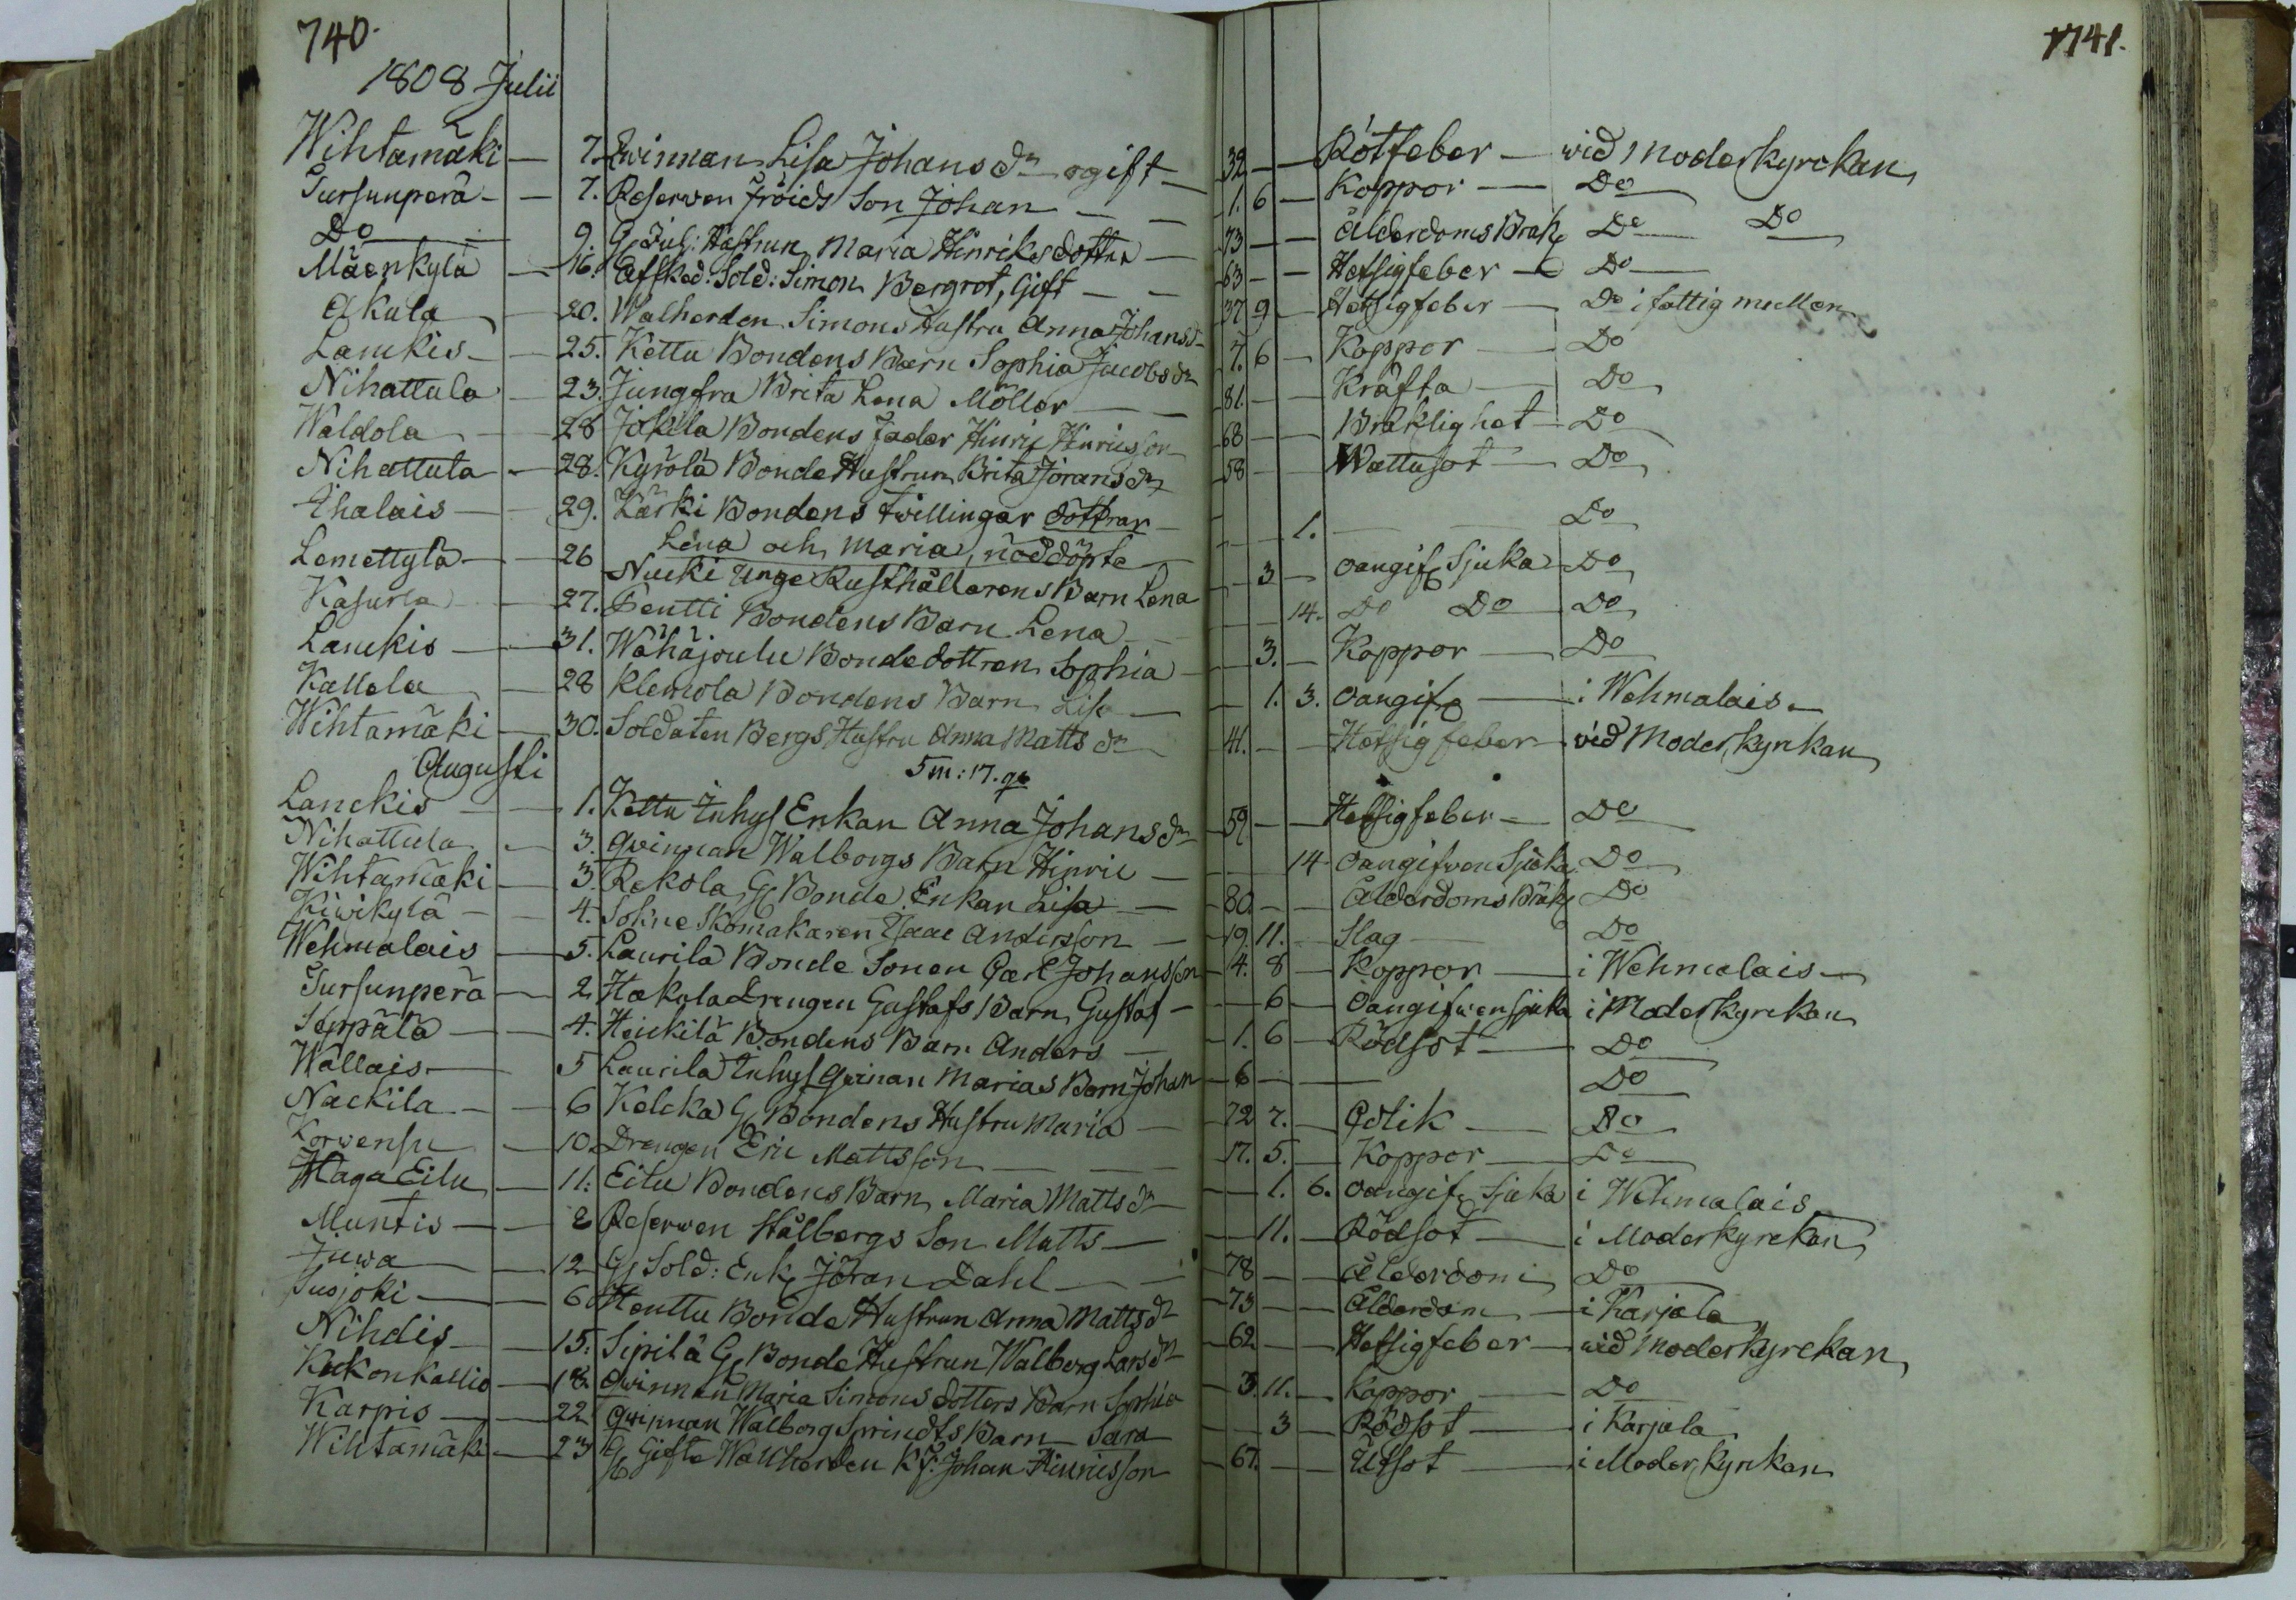 740.
1808 Julii
Wihtamäki — 7. Qwinnan Lisa Johans dr ogift —
Sursunperä — 7. Reserven Fröids Son Johan —
Do — 9. G. Sol: Hustrun Maria Hinriks dotter —
Mäenkylä — 16. Afsked: Sold: Simon Bergrot, Gift —
Akula — 20. Walherden Simons Hustru Anna Johans dr
Lauckis — 25. Kettu Bondens Barn Sophia Jacobs dr
Nihattula — 23. Jungfru Brita Lena Möller —
Waldola — 28 Jokela Bondens Fader Hinric Hinricsson
Nihattula — 28. Kyrölä Bonde Hustrun Brita Jörans dr
Ehalais — 29. Lärki Bondens twillingar döttrar —
Lena och Maria, nöddöpte
Lemettylä — 26 Nucki Unge Rusthållarens Barn Lena
Kasurla — 27. Pentti Bondens Barn Lena —
Lauckis — 31. Wähäjoulu Bonde dottren Sophia —
Kallela — 28 Klemola Bondens Barn Lisa —
Wihtamäki — 30. Soldaten Bergs Hustru Anna Matts dr
5 m: 17. q
Augusti
Lanckis — 1. Kettu Inhys Enkan Anna Johans dr
Nihattula — 3. Qwinnan Walborgs Barn Hinric —
Wihtamäki — 3. Rekola G Bonde Enkan Lisa —
Kiwikylä — 4. Sokne Skomakaren Isaac Andersson —
Wehmalais — 5. Laurila Bonde Sonen Carl Johansson
Sursunperä — 2. Hakola Drengen Gustafs Barn Gustaf —
Seppälä — 4. Heickilä Bondens Barn Anders —
Wallais — 5 Laurila Inhys Qwinan Marias Barn Johan
Nackila — 6 Kelcka G Bondens Hustru Maria —
Korwensu — 10. Drengen Eric Mattsson —
Haga Eilu — 11. Eilu Bondens Barn Maria Matts dr
Muntis — 2 Reserven Stålbergs Son Matts —
Juwa — 12 G Sold: Enk Jöran Dahl —
Susjoki — 6 Henttu Bonde Hustrun Anna Matts dr
Nihdis — 15. Sipilä G Bonde Hustrun Walborg Lars dr
Kukonkallio — 18. Qwinnan Maria Simons dotters Barn Sophia
Karpis — 22 Qwinnan Walborg Sprindts Barn Sara
Wihtamäki — 23 G Gifte Wallherden Kf. Johan Hinricsson
1741.
39 — — Rötfeber — wid Moderkyrckan
1. 6 — Koppor — Do
73 — — ÅlderdomsBräk Do Do
63 — — Hetsigfeber — Do
37 9 Hetsigfeber — Do i fattig mullen
7. 6 — Koppor — Do
81. — — Kräfta — Do
68 — — Bräklighet — Do
58 — — Wattusot — Do
1. — Do
3 — oangif Sjuka — Do
14. Do Do — Do
3. — Koppor — Do
1. 3. oangif — i Wehmalais
41. — — Hetsigfeber wid Moderkyrkan
59 — — Hetsigfeber — Do
14 oangifven Sjuka Do
80 — — Ålderdoms Bräk Do
19. 11. — Slag — Do
4. 8 — Koppor — i Wehmalais —
6 — oangifwen sjuka i Moderkyrckan
1. 6 — Rödsot — Do
6 — — Do
72 7. — Colik — Do
17. 5. — Koppor — Do
1. 6. oangif Sjuka i Wehmalais
11. — Rödsot — i Moderkyrckan
78 — — Ålderdom Do
73 — — Ålderdom — i Karjala
62 — — Hetsigfeber — wid Moderkyrckan
3. 11. — Koppor — Do
3 — Rödsot — i Karjala
67. — — Utsot — i Moderkyrckan